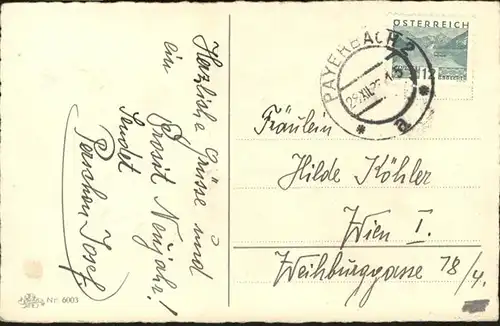 Herzliche Grüsse und
ein Prosit Neujahr!
Sendet
Perschon Josef
Nr. 6003
ÖSTERREICH
12
PAYERBACH 2
a
Fräulein
Hilde Köhler
Wien I.
Weihburggasse 18/4.